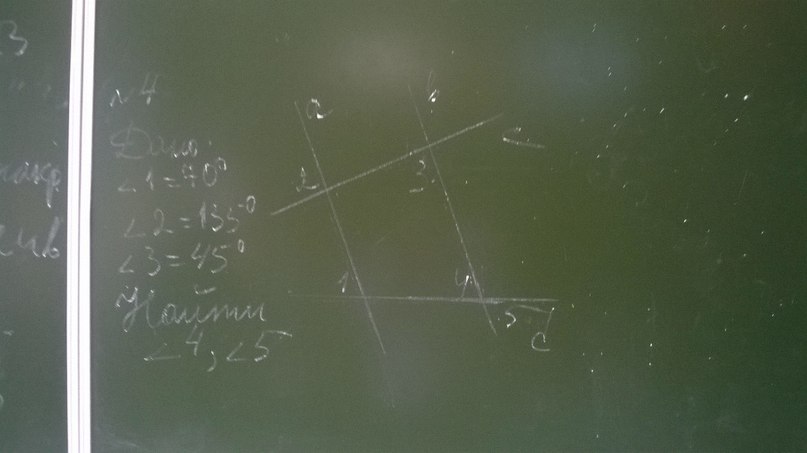 3
№4
Дано:
∠1=70°
∠2=135°
∠3=45°
Найти
∠4, ∠5
a
b
c
2
3
1
4
5